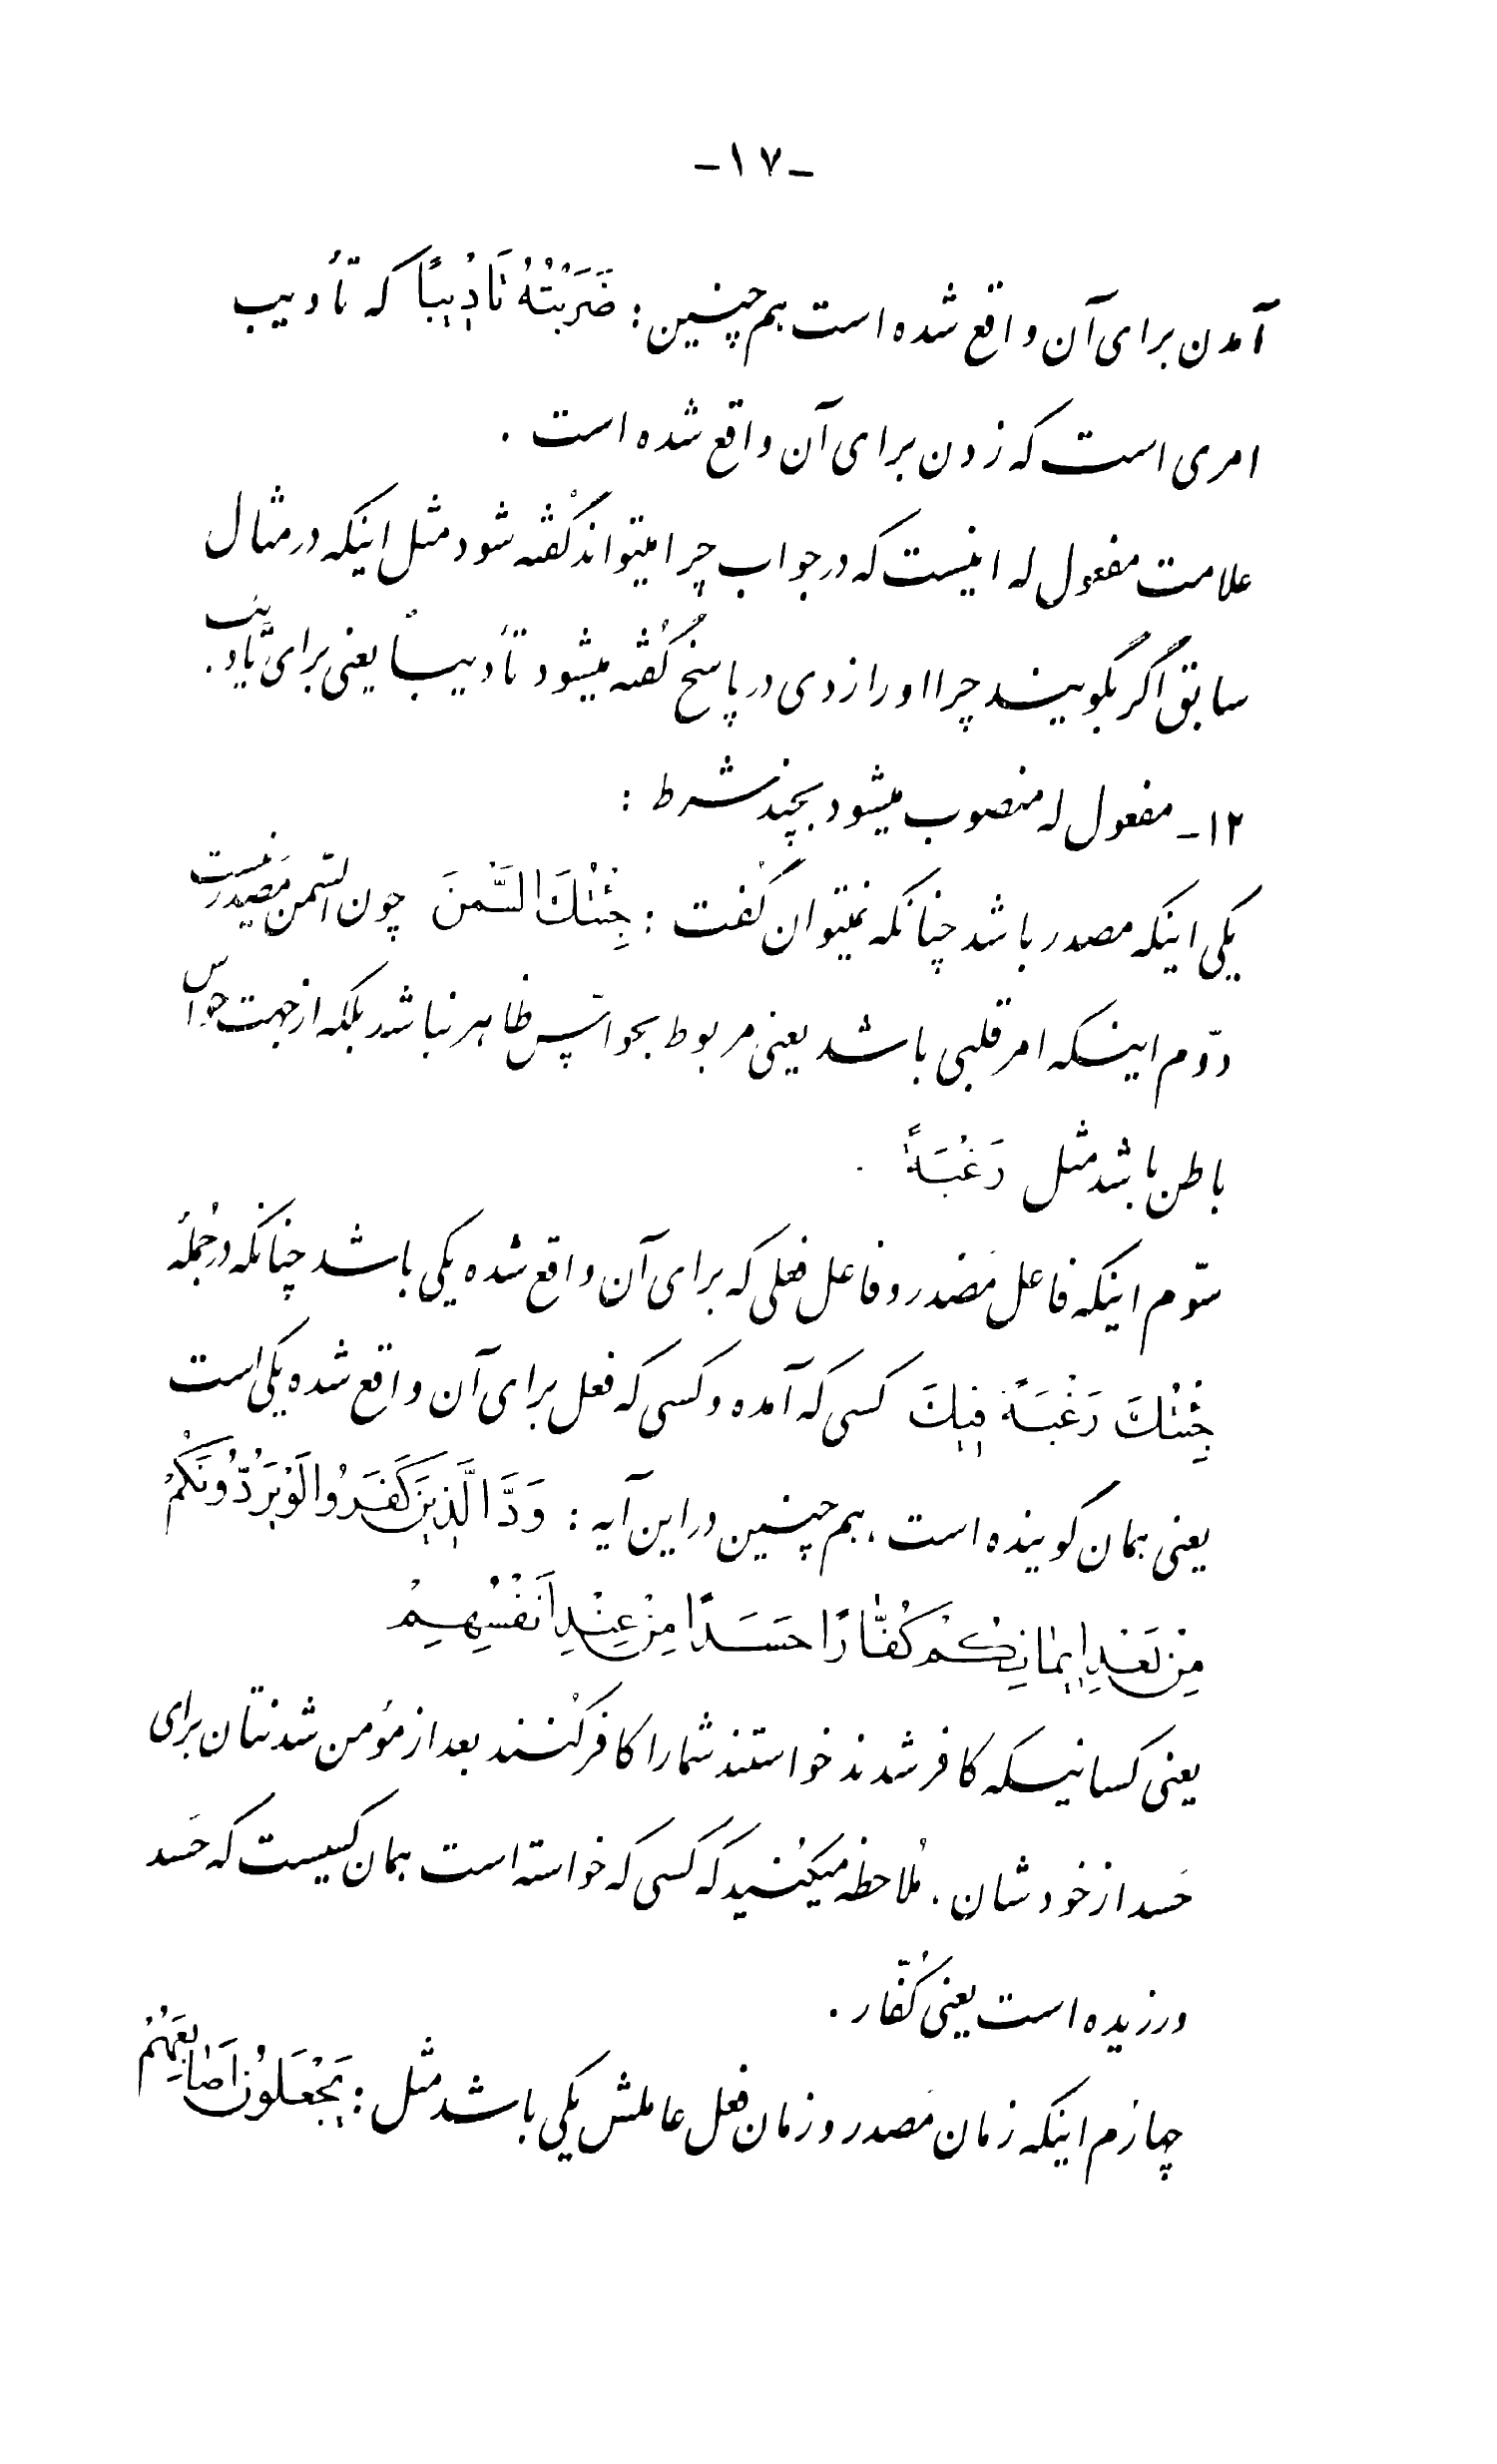 -۱۷-
آمدن برای آن واقع شده است هم چنین : ضَرَبْتُهُ تَادْیباً که تأدیب
امری است که زدن برای آن واقع شده است .
علامت مفعول له اینست که در جواب چرا میتواند گفته شود مثل اینکه در مثال
سابق اگر بگویند چرا او را زدی در پاسخ گفته میشود تأدیباً یعنی برای تأدیب .
۱۲- مفعول له منصوب میشود بچند شرط :
یکی اینکه مصدر باشد چنانکه نمیتوان گفت : جِئْتُكَ السَّمْنَ چون السّمن مصدر نیست
دوّم اینکه امر قلبی باشد یعنی مربوط بحواسّ ظاهر نباشد بلکه از جهت حواس
باطن باشد مثل رَغْبَةً .
سوّم اینکه فاعل مَصدر و فاعل فعلی که برای آن واقع شده یکی باشد چنانکه در جُملهٔ
جِئْتُكَ رَغْبَةً فیكَ کسی که آمده و کسی که فعل برای آن واقع شده یکی است
یعنی همان گوینده است ، هم چنین در این آیه : وَدَّ الَّذینَ كَفَرُوا لَوْ یَرُدُّونَكُمْ
مِنْ بَعْدِ ایمانِكُمْ كُفّاراً حَسَداً مِنْ عِنْدِ اَنْفُسِهِمْ
یعنی کسانیکه کافر شدند خواستند شما را کافر کنند بعد از مؤمن شدنتان برای
حَسد از خودشان . مُلاحظه میکنید که کسی که خواسته است همان کسیست که حَسد
ورزیده است یعنی کُفّار .
چهارم اینکه زمان مَصدر و زمان فعل عاملش یکی باشد مثل : یَجْعَلُونَ اَصابِعَهُمْ